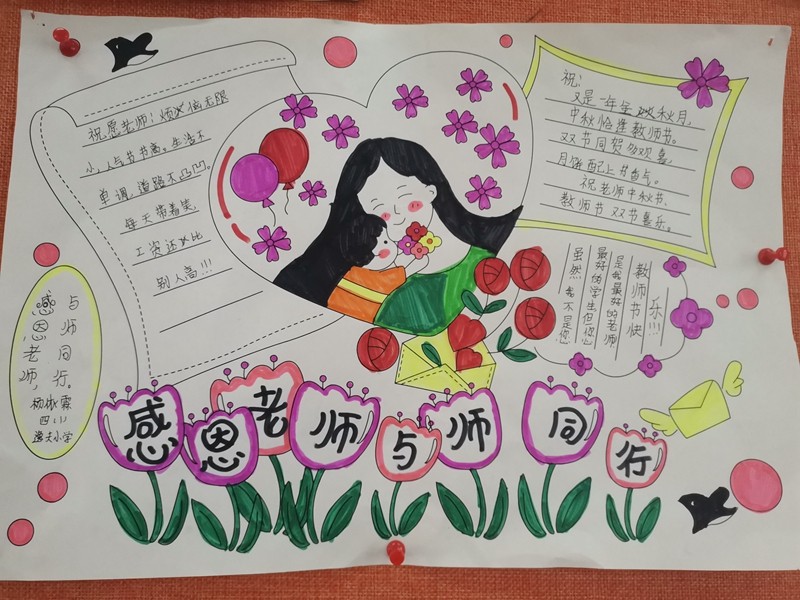 祝愿老师:烦恼无限
小,人气节节高。生活不
单调,道路不凸凹。
每天带着笑,
工资还比
别人高!!!
祝:
又是一年至秋月,
中秋恰逢教师节。
双节同贺
月饼配上节
祝老师中秋节、
教师节双节喜乐。
虽然我不是您
最好的学生但您
是我最好的老师
教师节快
乐!!!
感恩老师,
与师同行。
四(1)
逸夫小学
感恩老师与师同行